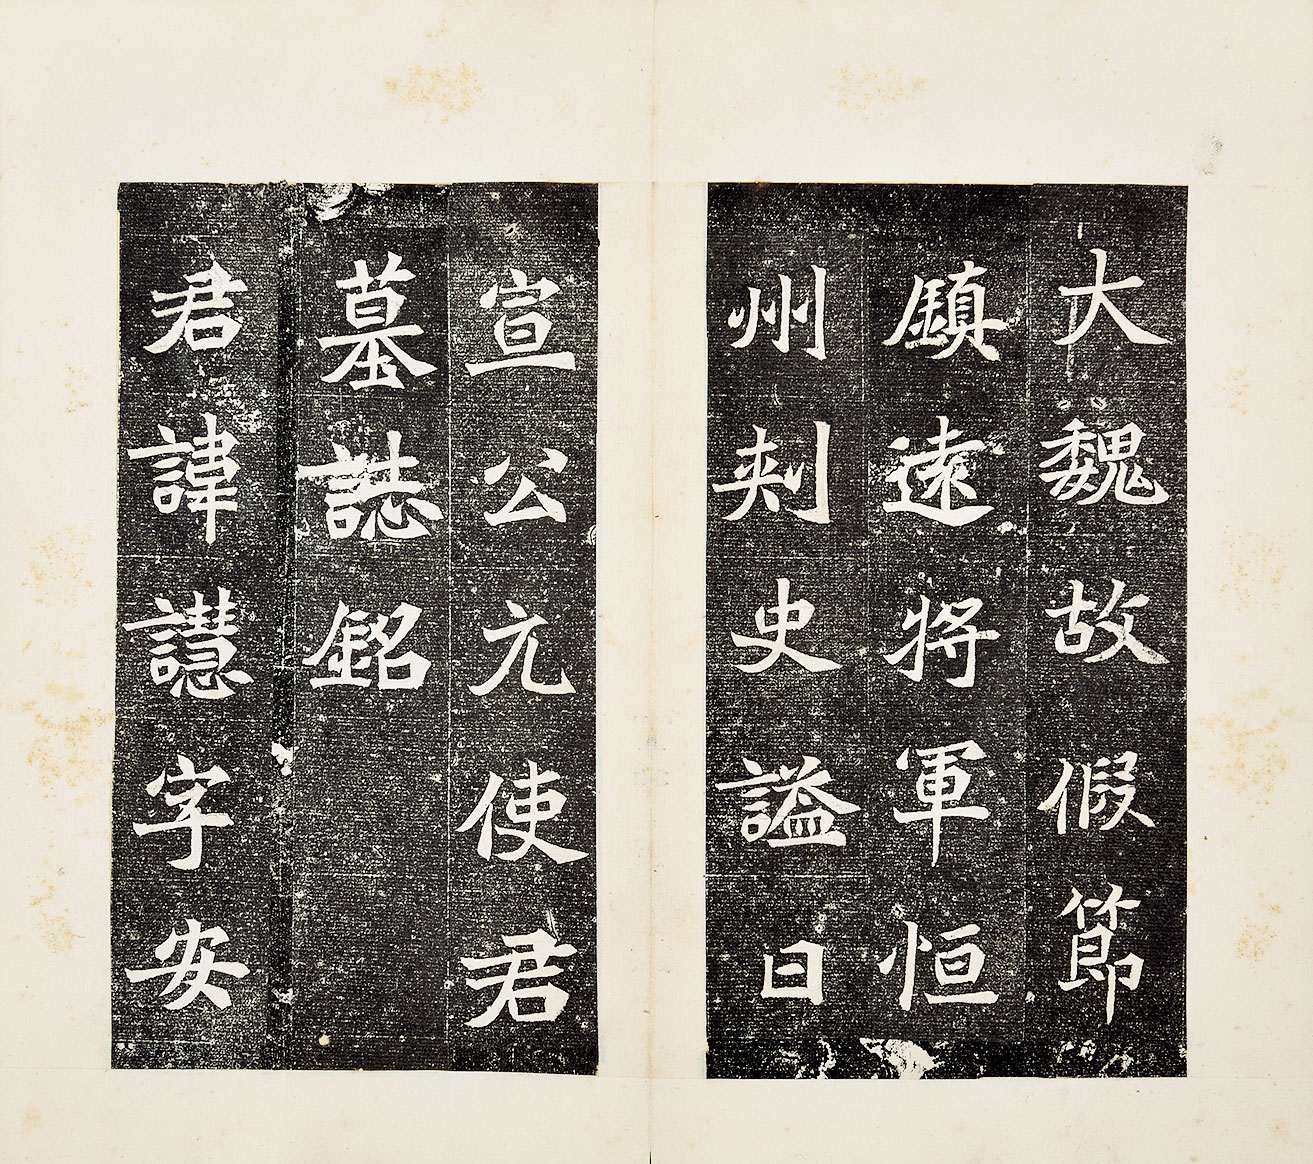 大魏故假節
鎮遠將軍恒
州刾史謚曰
宣公元使君
墓誌銘
君諱譿字安